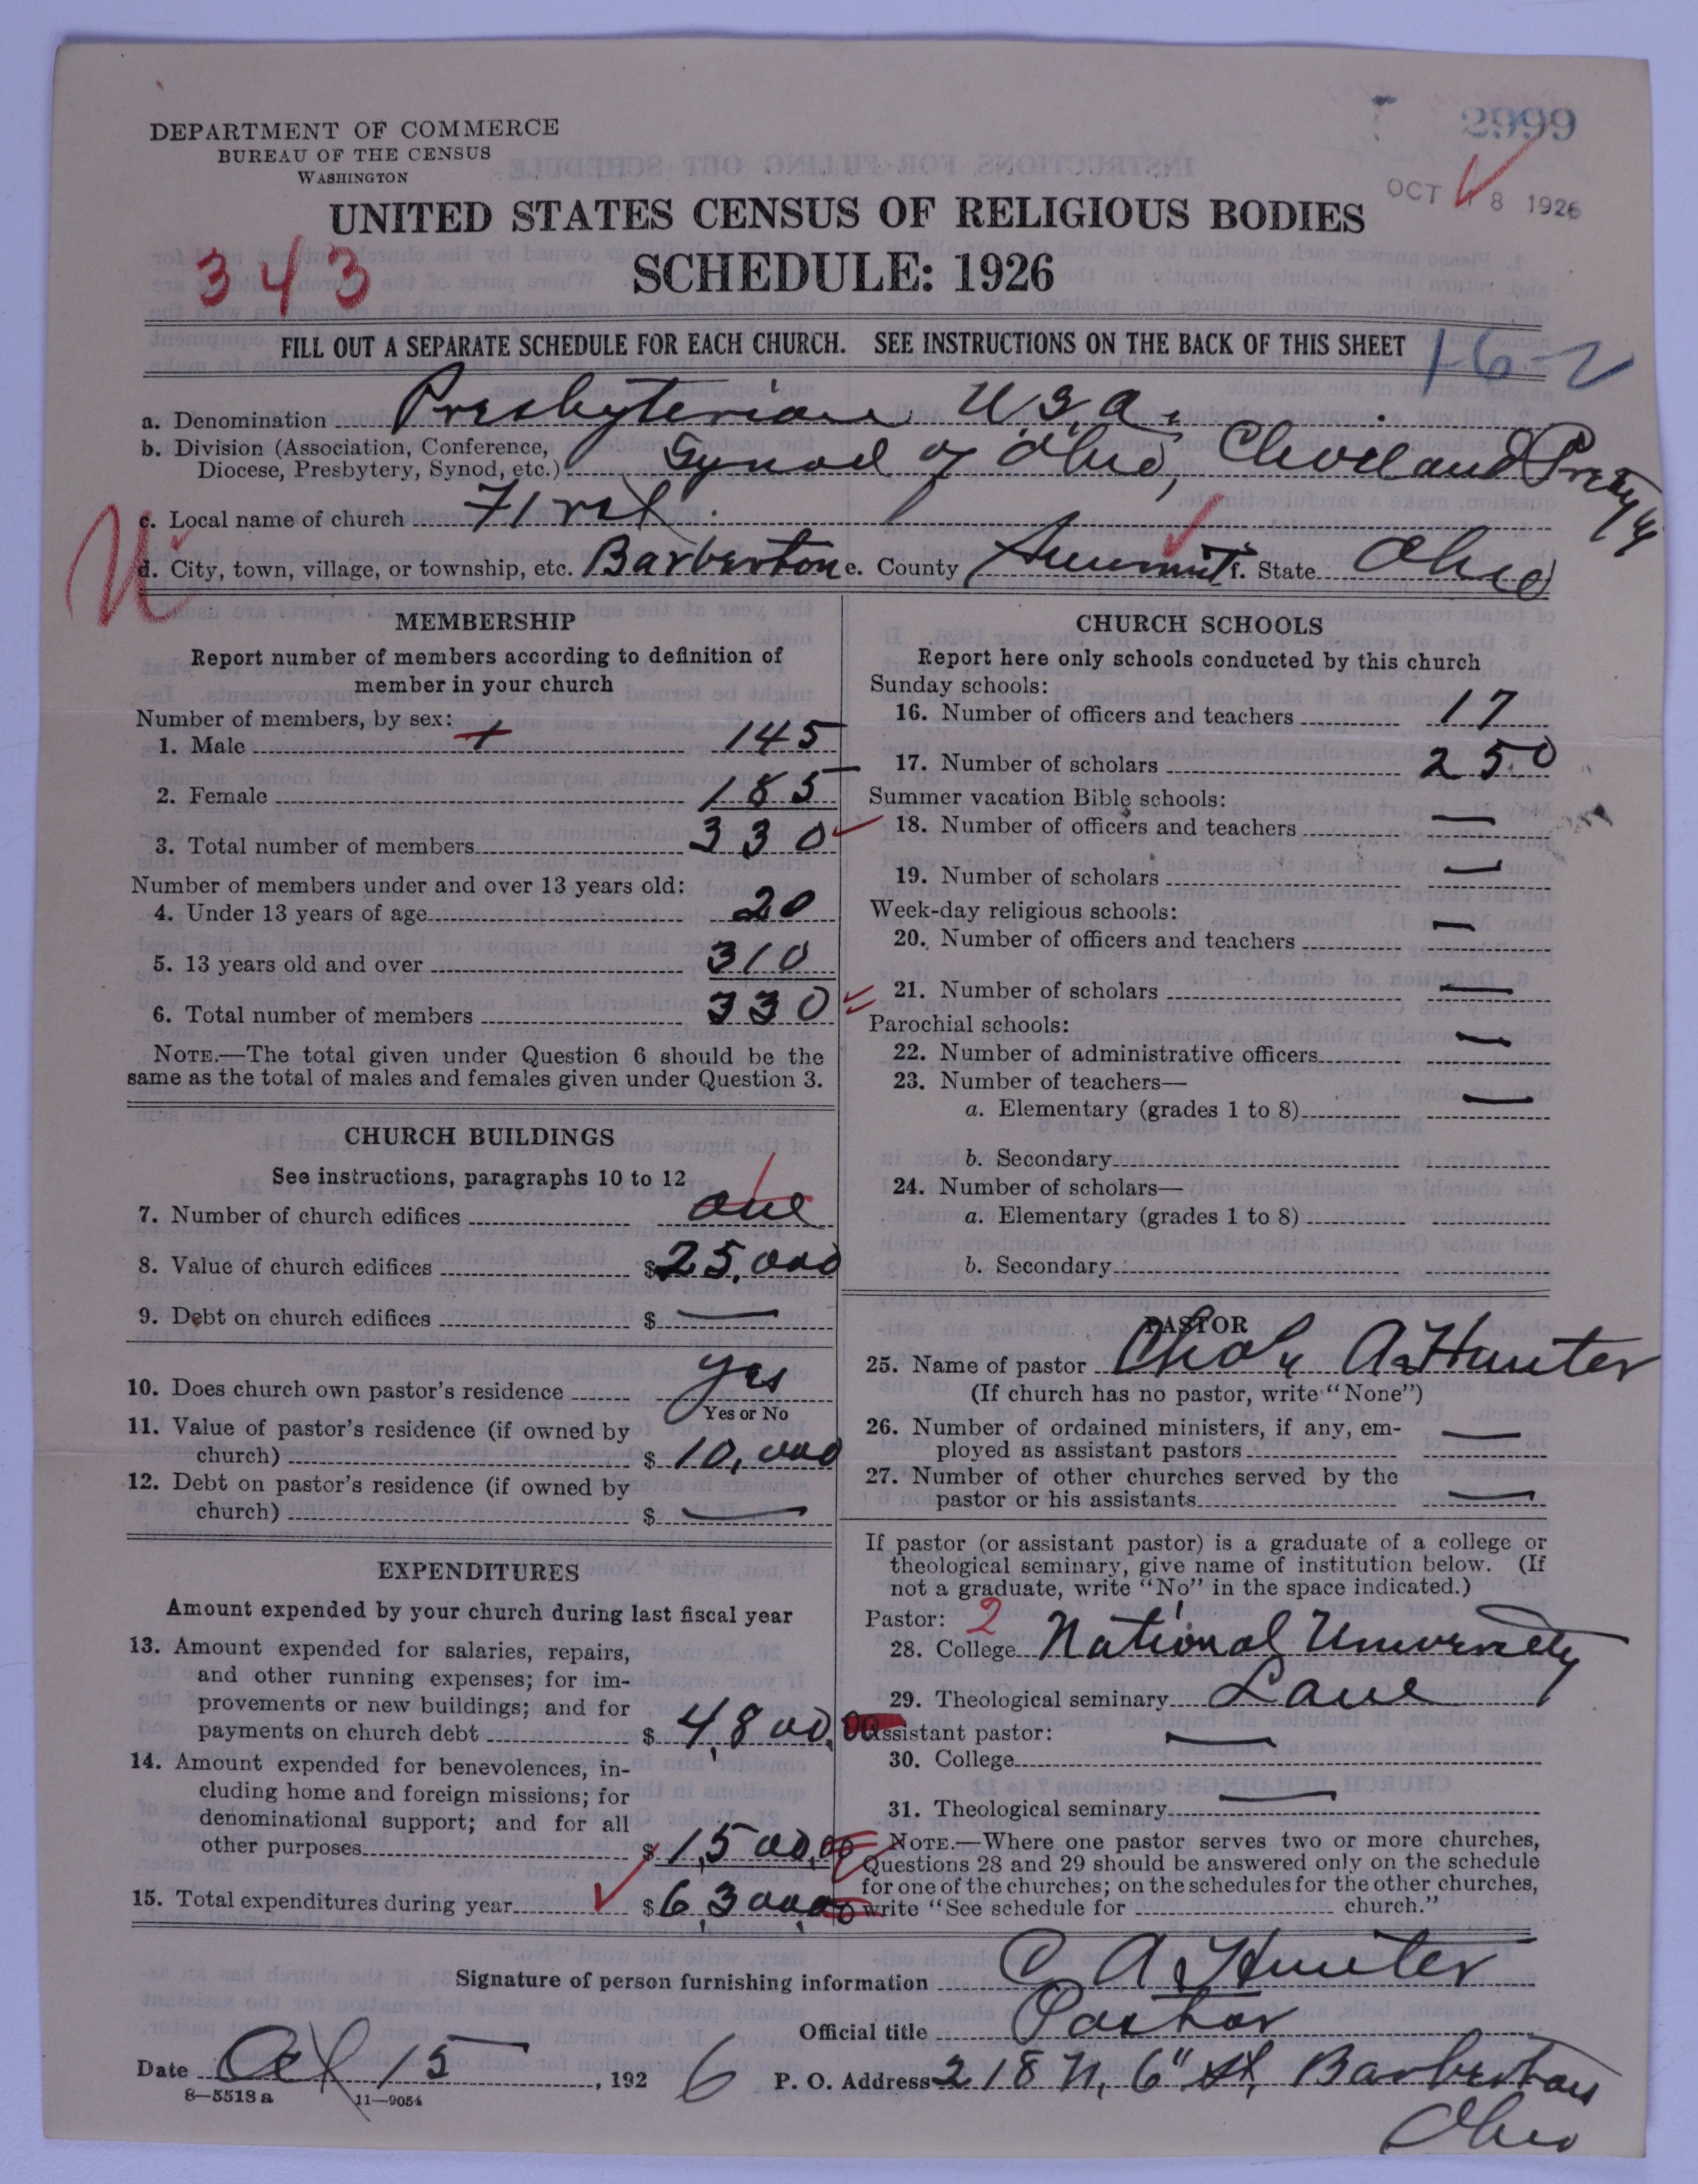 DEPARTMENT OF COMMERCE
BUREAU OF THE CENSUS
WASHINGTON
2999
OCT 18 1926
UNITED STATES CENSUS OF RELIGIOUS BODIES
343
SCHEDULE: 1926
FILL OUT A SEPARATE SCHEDULE FOR EACH CHURCH. SEE INSTRUCTIONS ON THE BACK OF THIS SHEET
16-2
a. Denomination Presbyterian U.S.A.
b. Division (Association, Conference,
Diocese, Presbytery, Synod, etc.) Synod of Ohio, Cleveland
c. Local name of church First
d. City, town, village, or township, etc. Barberton e. County Summit f. State Ohio
MEMBERSHIP
Report number of members according to definition of
member in your church
Number of members, by sex:
1. Male 145
2. Female 185
3. Total number of members 330
Number of members under and over 13 years old:
4. Under 13 years of age 20
5. 13 years old and over 310
6. Total number of members 330
NOTE.—The total given under Question 6 should be the
same as the total of males and females given under Question 3.
CHURCH BUILDINGS
See instructions, paragraphs 10 to 12
7. Number of church edifices one 1
8. Value of church edifices $25,000
9. Debt on church edifices $ —
10. Does church own pastor's residence yes
Yes or No
11. Value of pastor's residence (if owned by
church) $ 10,000
12. Debt on pastor's residence (if owned by
church) $ —
EXPENDITURES
Amount expended by your church during last fiscal year
13. Amount expended for salaries, repairs,
and other running expenses; for im-
provements or new buildings; and for
payments on church debt $ 4,800.00
14. Amount expended for benevolences, in-
cluding home and foreign missions; for
denominational support; and for all
other purposes $1,500.00
15. Total expenditures during year $6,300.00
CHURCH SCHOOLS
Report here only schools conducted by this church
Sunday schools:
16. Number of officers and teachers 17
17. Number of scholars 250
Summer vacation Bible schools:
18. Number of officers and teachers —
19. Number of scholars —
Week-day religious schools:
20. Number of officers and teachers —
21. Number of scholars —
Parochial schools:
22. Number of administrative officers —
23. Number of teachers—
a. Elementary (grades 1 to 8) —
b. Secondary
24. Number of scholars—
a. Elementary (grades 1 to 8)
b. Secondary
PASTOR
25. Name of pastor A Hunter
(If church has no pastor, write "None")
26. Number of ordained ministers, if any, em-
ployed as assistant pastors —
27. Number of other churches served by the
pastor or his assistants —
If pastor (or assistant pastor) is a graduate of a college or
theological seminary, give name of institution below. (If
not a graduate, write "No" in the space indicated.)
Pastor: 2
28. College National University
29. Theological seminary Lane
Assistant pastor: —
30. College
31. Theological seminary —
NOTE.—Where one pastor serves two or more churches,
Questions 28 and 29 should be answered only on the schedule
for one of the churches; on the schedules for the other churches,
write "See schedule for church."
Signature of person furnishing information C A Hunter
Official title Pastor
Date Oct 15, 1926 P. O. Address 218 N. 6" St, Barberton
Ohio
8-5518a 11-9054